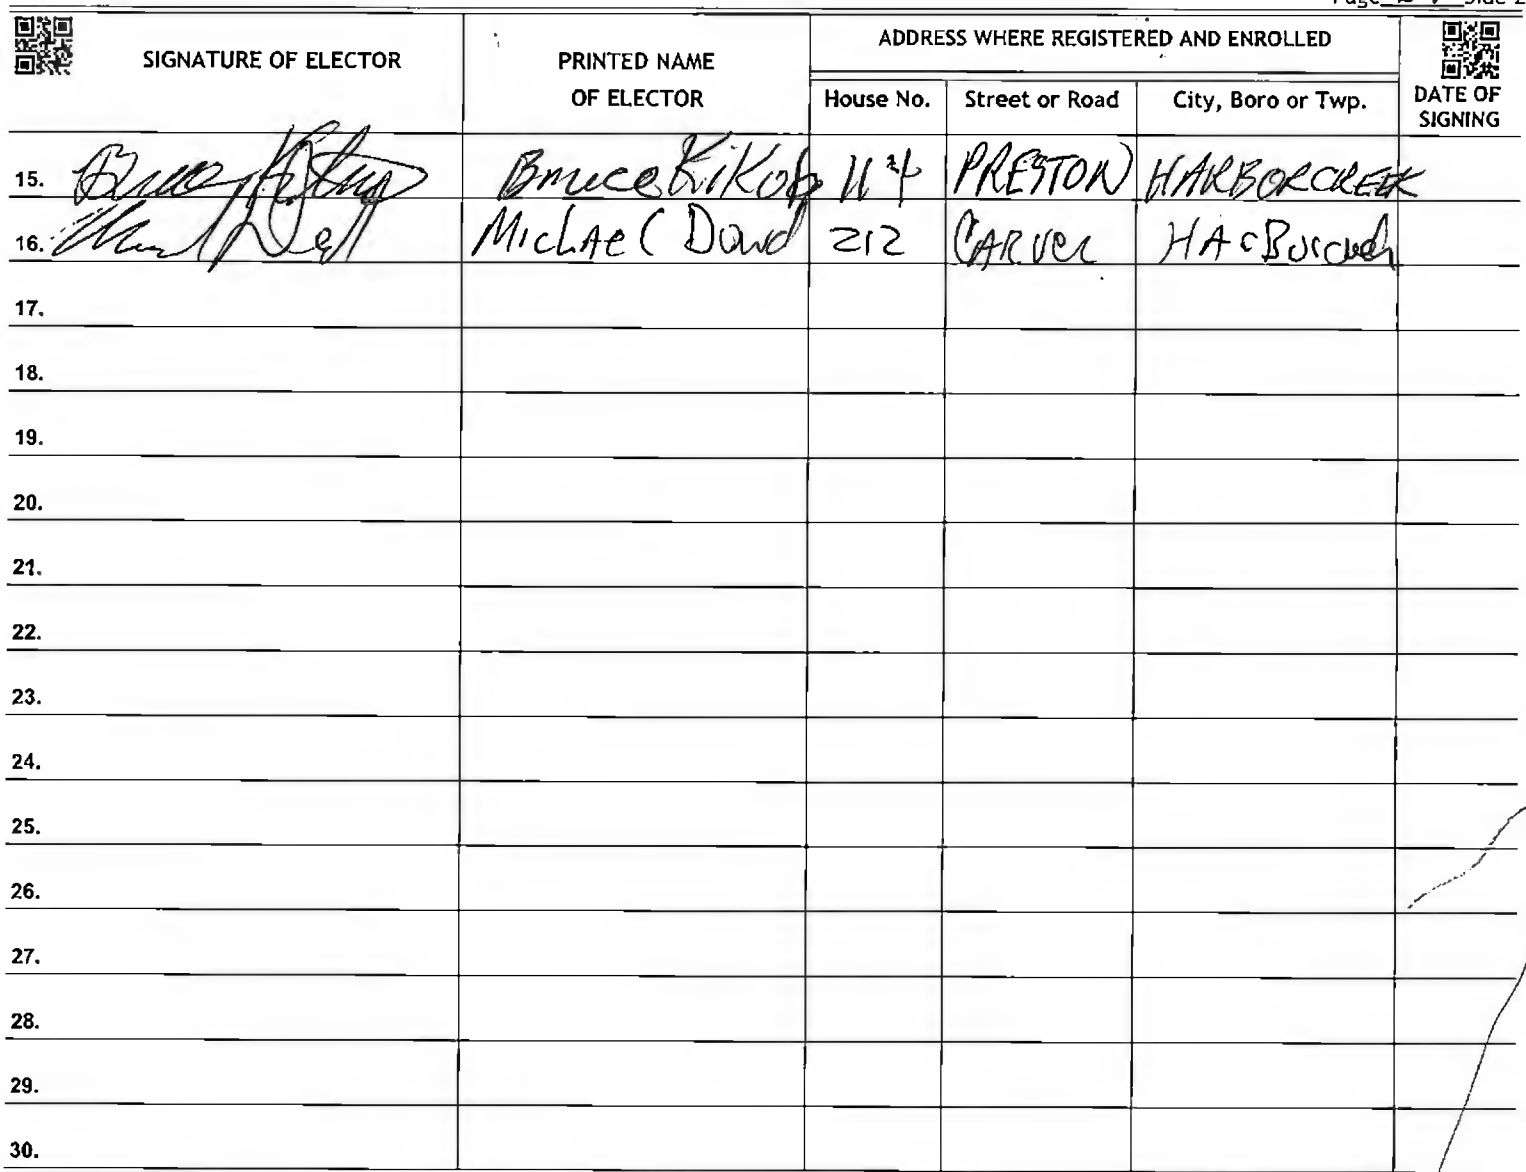 Side 2
SIGNATURE OF ELECTOR
PRINTED NAME
OF ELECTOR
ADDRESS WHERE REGISTERED AND ENROLLED
House No.
Street or Road
City, Boro or Twp.
DATE OF
SIGNING
15. Bruce PRESTON HARBORCREEK
16. Michael Dowd 212 CARVER
17.
18.
19.
20.
21.
22.
23.
24.
25.
26.
27.
28.
29.
30.